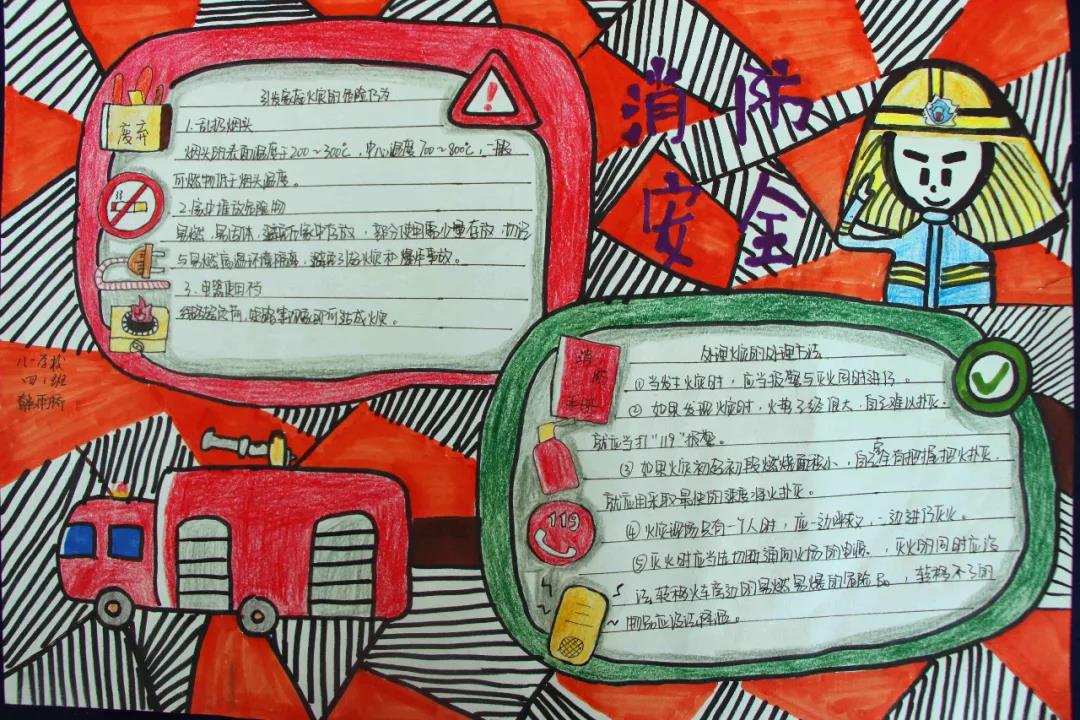 消防
安全
引发家庭火灾的危险行为
废弃
1.乱扔烟头
烟头的表面温度于200～300℃,中心温度700～800℃,一般
可燃物低于烟头温度。
2.家中堆放危险物
易燃、易 体 避免在家中存放,部分使用需少量存放
与易燃高温环境隔离,避免引起火灾和爆炸事故。
3.电器使用不
线路超负荷,短路等现象即可造成火灾。
八一学校
四1班
处理火灾的处理方法
消防
①当发生火灾时,应当报警与灭火同时进行。
②如果发现火灾时,火势已经很大,自己难以扑灭。
就应当打"119"报警。
③如果火灾初起初段燃烧面积小,自己有把握把火扑灭,
就应用采取最快的速度将火扑灭。
119
④火灾现场只有一个人时,应一边呼救,一边进行灭火。
⑤灭火时应当先切断通向火场的电源。,灭火的同时应设
法转移火车旁边的易燃易爆的危险品,转移不了的
物品应设法降温。